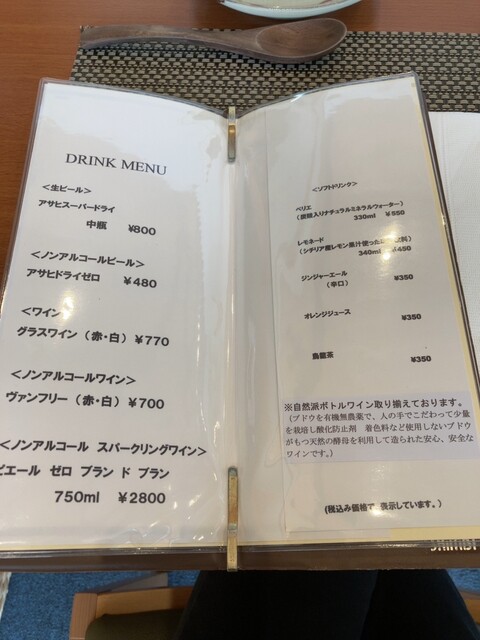 DRINK MENU
<生ビール>
アサヒスーパードライ
中瓶 ¥800
<ノンアルコールビール>
アサヒドライゼロ ¥480
<ワイン>
グラスワイン（赤・白）¥770
<ノンアルコールワイン>
ヴァンフリー（赤・白）¥700
<ノンアルコール スパークリングワイン>
ピエール ゼロ ブラン ド ブラン
750ml ¥2800
<ソフトドリンク>
ペリエ
（炭酸入りナチュラルミネラルウォーター）
330ml ¥550
レモネード
（シチリア産レモン果汁使った 飲料）
340ml ¥450
ジンジャーエール ¥350
（辛口）
オレンジジュース ¥350
烏龍茶 ¥350
※自然派ボトルワイン取り揃えております。
（ブドウを有機無農薬で、人の手でこだわって少量
を栽培し酸化防止剤 着色料など使用しないブドウ
がもつ天然の酵母を利用して造られた安心、安全な
ワインです。）
（税込み価格で、表示しています。）